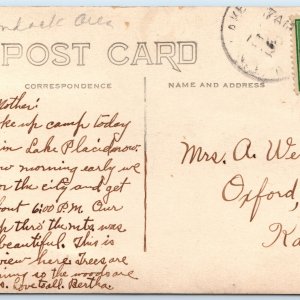 ondack Area
POST CARD
LAKE
CORRESPONDENCE
NAME AND ADDRESS
Mother:
ke up camp today
in Lake Placid now
ow morning early we
for the city and get
bout 6:00 P.M. Our
p thro' the mts was
beautiful. This is
view here. Trees are
ning so the woods are
s. Love to all. Bertha.
Mrs. A. We
Oxford,
Ka